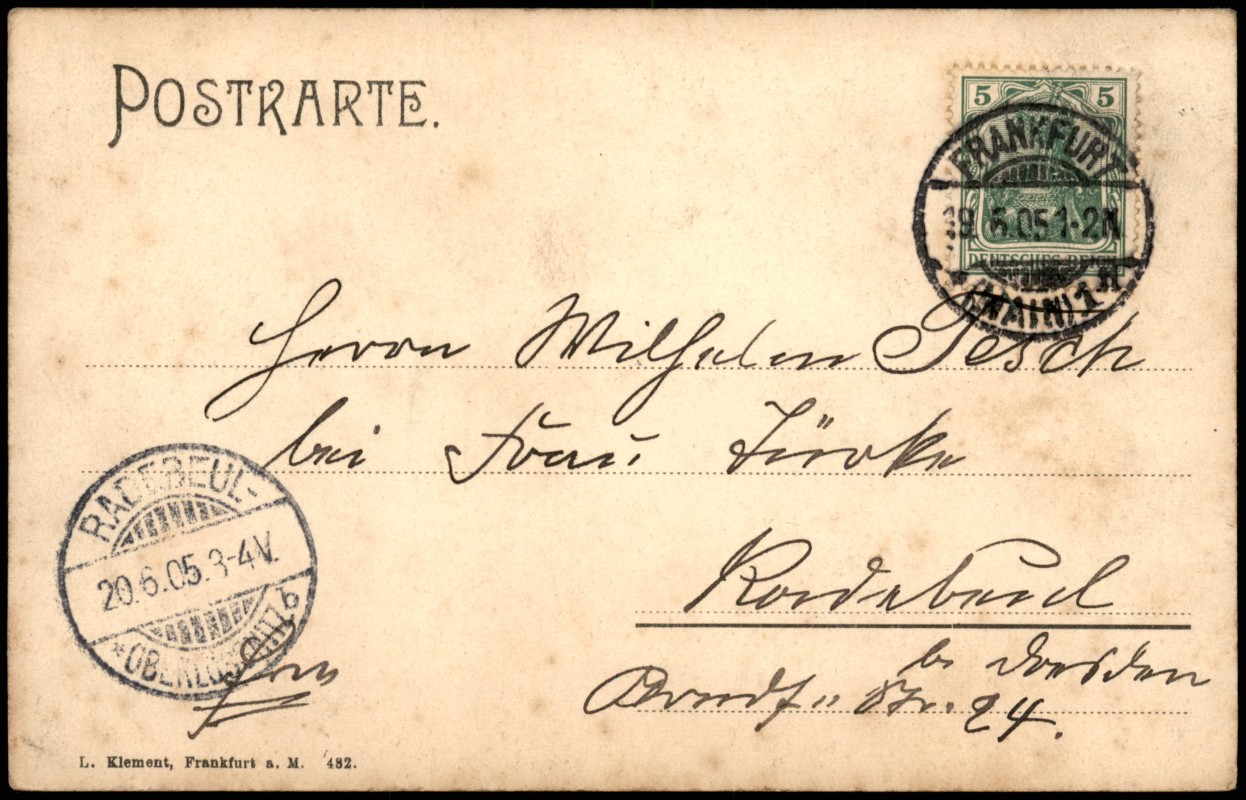 POSTKARTE.
5 5
FRANKFURT
19.6.05.1-2N
DEUTSCHES REICH
(MAIN) 1
Herrn Wilhelm Pesch
bei Frau Türke
Radebeul
b. Dresden
Str. 24.
RADEBEUL-
20.6.05.3-4V.
*OBERLÖSSNITZ b
L. Klement, Frankfurt a. M. 482.